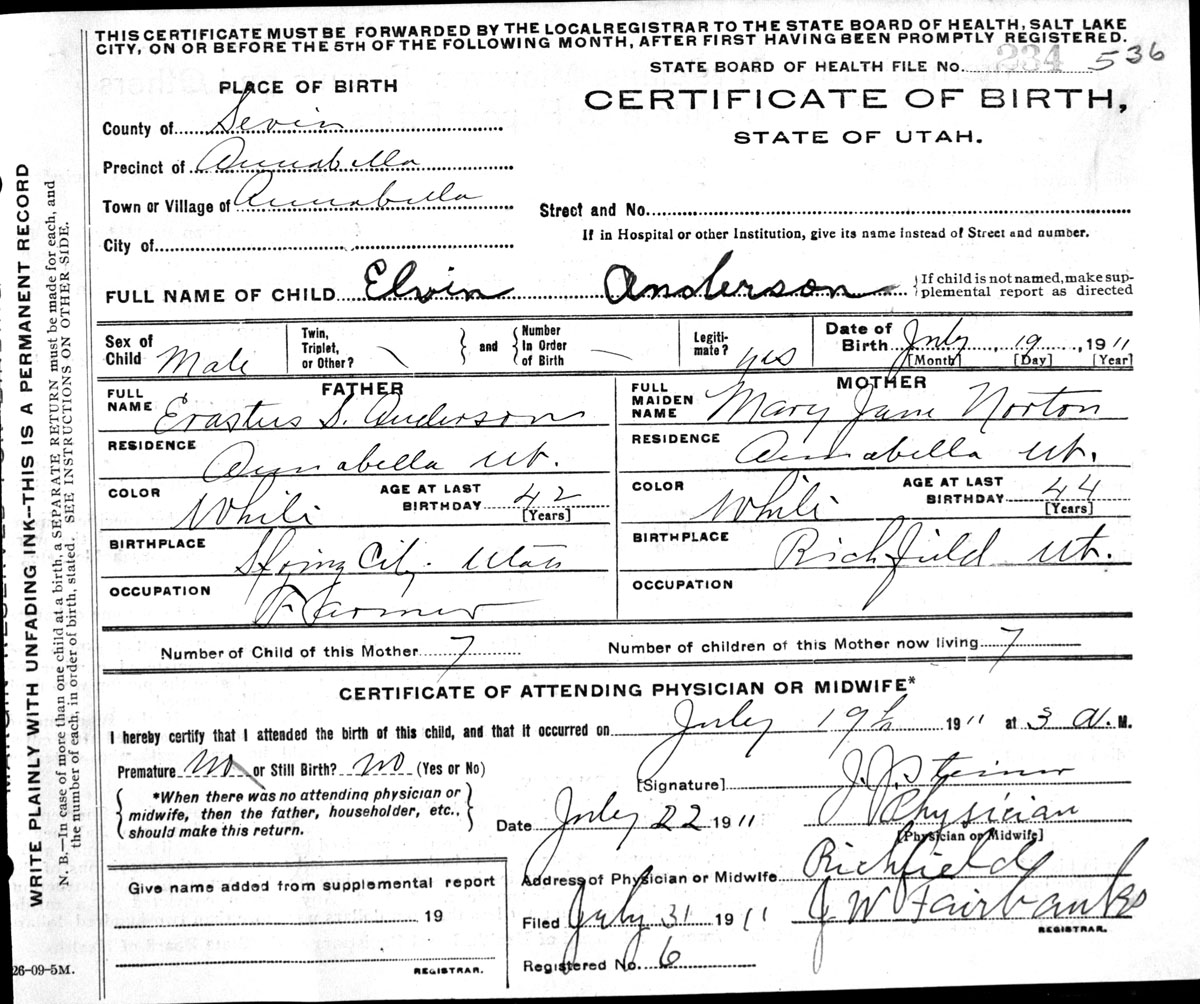 THIS CERTIFICATE MUST BE FORWARDED BY THE LOCALREGISTRAR TO THE STATE BOARD OF HEALTH, SALT LAKE
CITY, ON OR BEFORE THE 5TH OF THE FOLLOWING MONTH, AFTER FIRST HAVING BEEN PROMPTLY REGISTERED.
STATE BOARD OF HEALTH FILE No. 234 536
PLACE OF BIRTH
CERTIFICATE OF BIRTH,
STATE OF UTAH.
County of Sevier
Precinct of Annabella
Town or Village of Annabella
Street and No.
City of
If in Hospital or other Institution, give its name instead of Street and number.
FULL NAME OF CHILD Elvin Anderson
{If child is not named, make sup-
plemental report as directed
Sex of Child Male
Twin, Triplet, or Other?
and
Number In Order of Birth
Legiti-mate? yes
Date of Birth July, 19, 1911
[Month] [Day] [Year]
FATHER
FULL NAME Erastus S. Anderson
MOTHER
FULL MAIDEN NAME Mary Jane Norton
RESIDENCE Annabella Ut.
RESIDENCE Annabella Ut.
COLOR White AGE AT LAST BIRTHDAY 42 [Years]
COLOR White AGE AT LAST BIRTHDAY 44 [Years]
BIRTHPLACE Spring City. Utah
BIRTHPLACE Richfield Ut.
OCCUPATION Farmer
OCCUPATION
Number of Child of this Mother 7 Number of children of this Mother now living 7
CERTIFICATE OF ATTENDING PHYSICIAN OR MIDWIFE*
I hereby certify that I attended the birth of this child, and that it occurred on July 19th 1911 at 3 A. M.
Premature No or Still Birth? No (Yes or No)
[Signature] J. J. Steiner
*When there was no attending physician or
midwife, then the father, householder, etc.,
should make this return.
Date July 22 1911 Physician
[Physician or Midwife]
Address of Physician or Midwife Richfield
Give name added from supplemental report
19
REGISTRAR.
Filed July 31 1911 J. W. Fairbanks
REGISTRAR.
Registered No. 6
26-09-5M.
WRITE PLAINLY WITH UNFADING INK--THIS IS A PERMANENT RECORD
N. B.—In case of more than one child at a birth, a SEPARATE RETURN must be made for each, and
the number of each, in order of birth, stated. SEE INSTRUCTIONS ON OTHER SIDE.